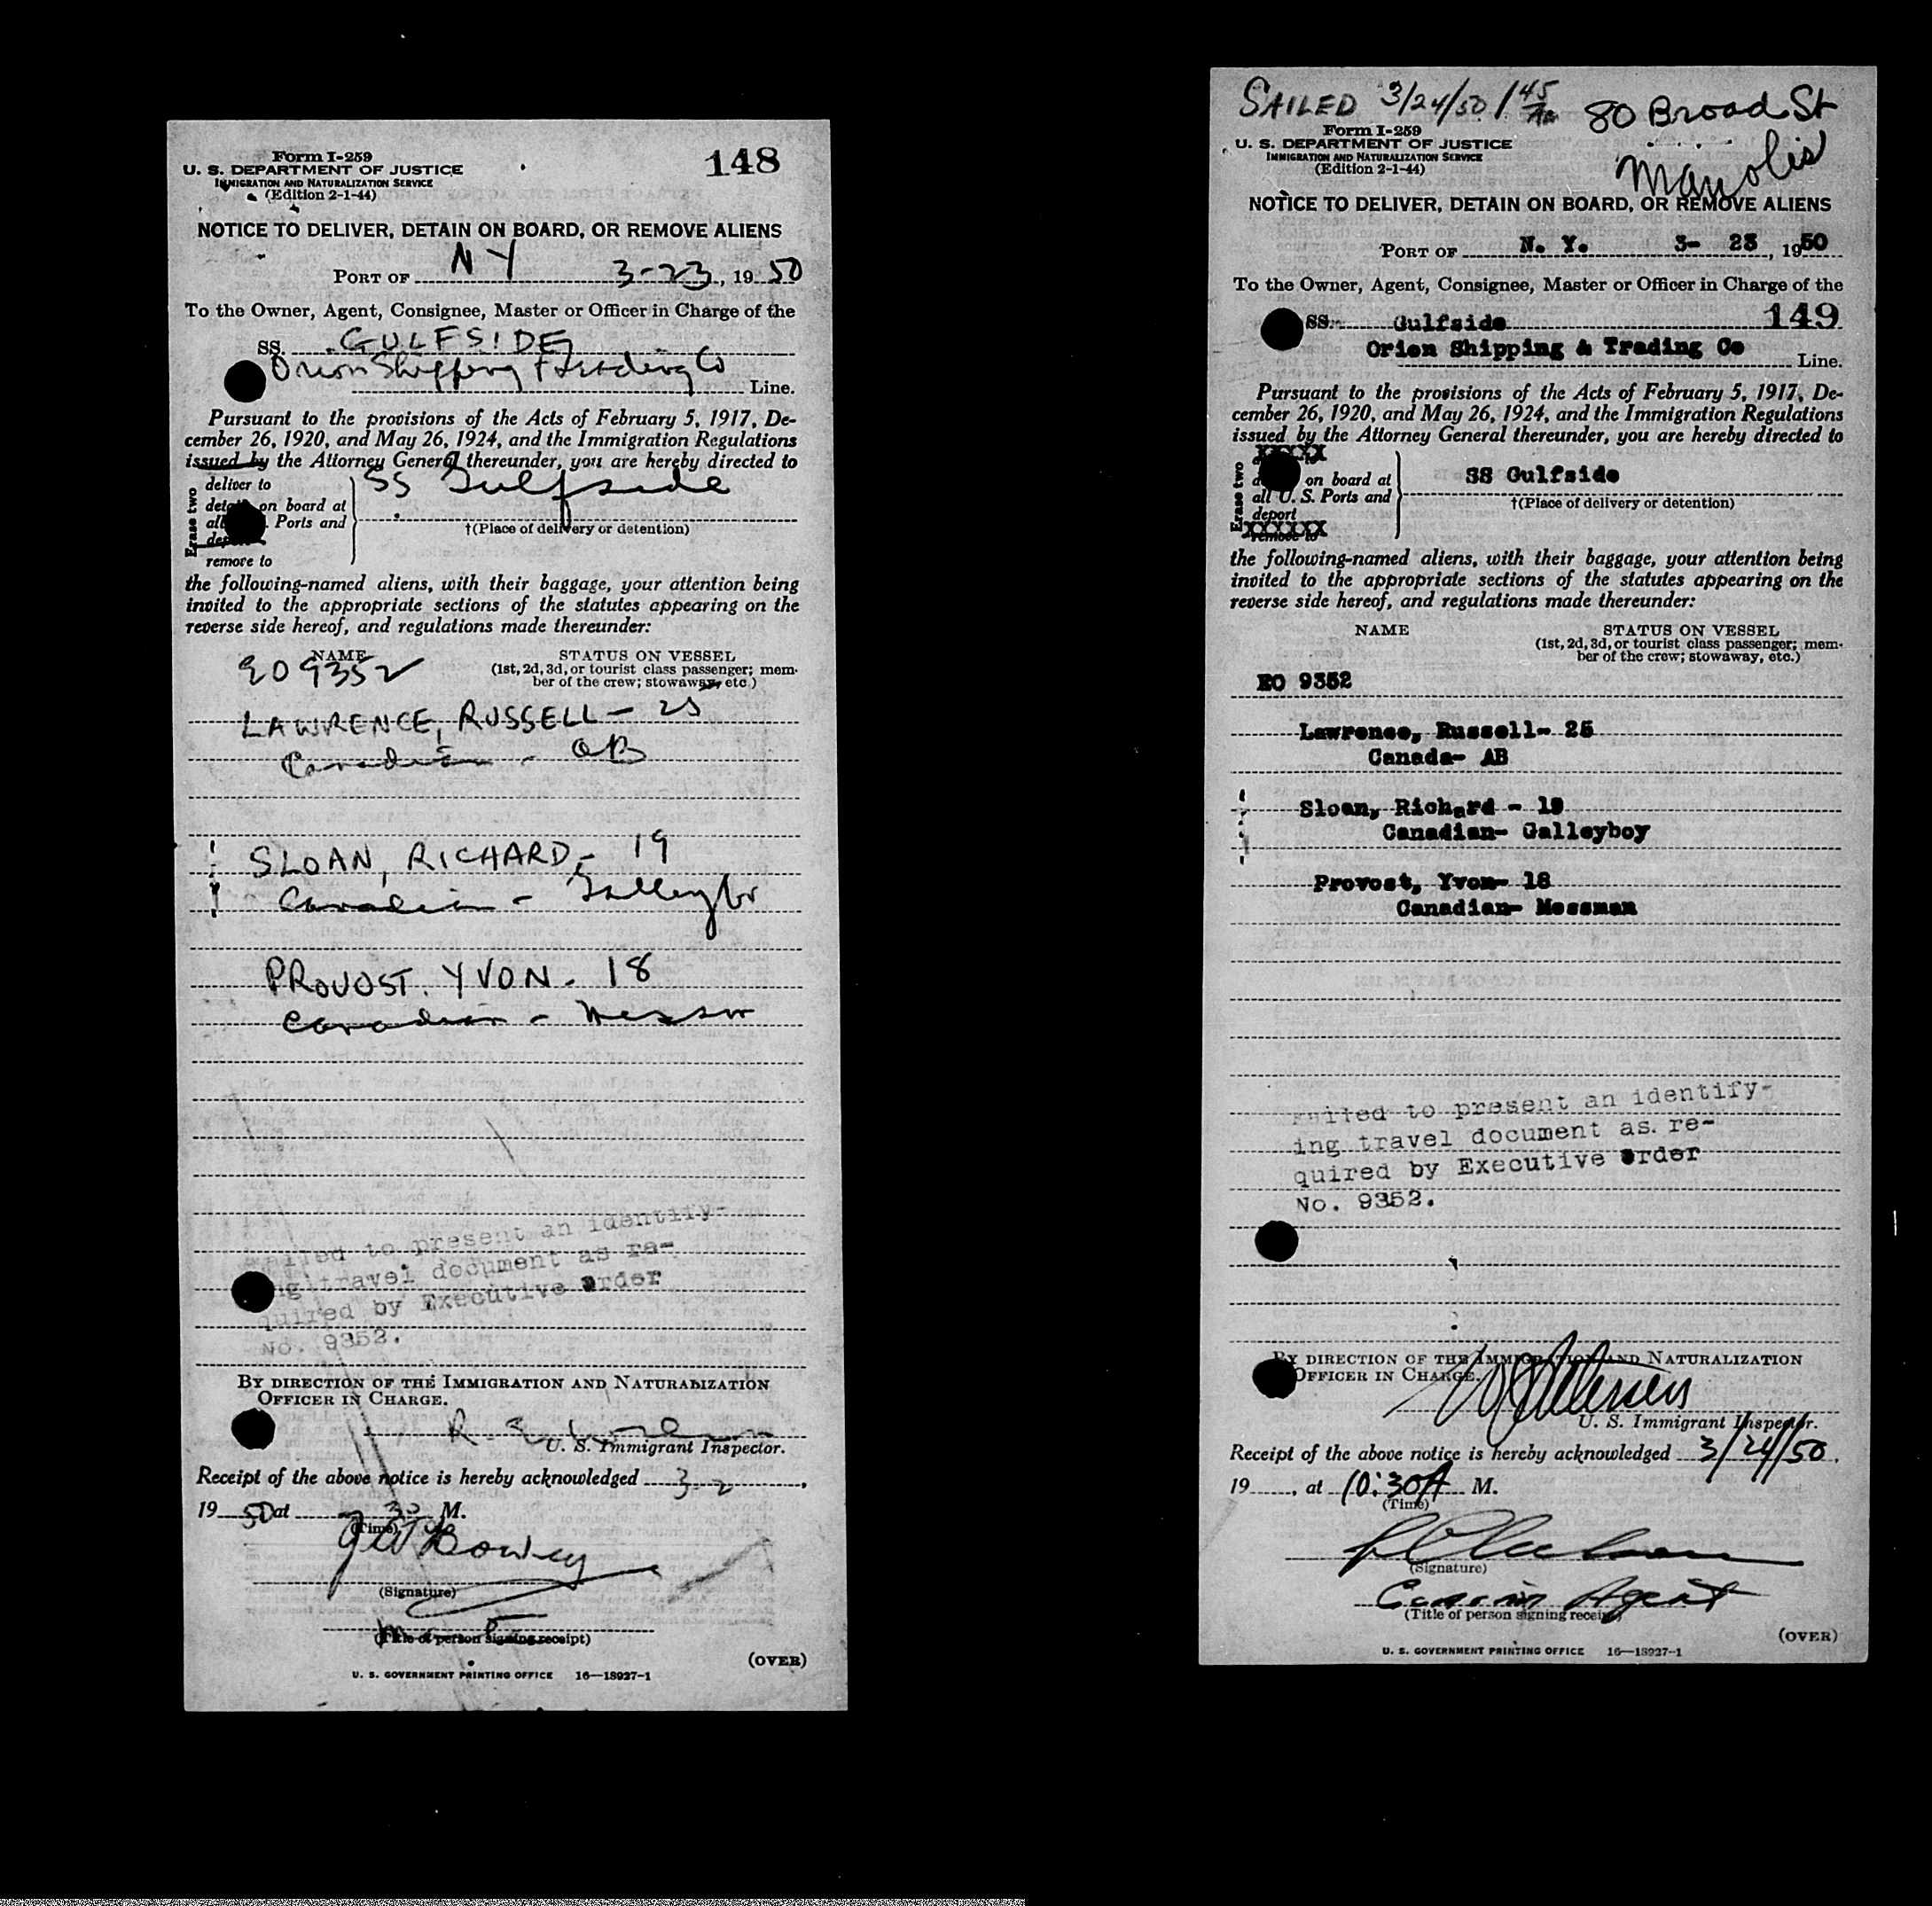 Form I-259
U. S. DEPARTMENT OF JUSTICE
IMMIGRATION AND NATURALIZATION SERVICE
(Edition 2-1-44)
148
NOTICE TO DELIVER, DETAIN ON BOARD, OR REMOVE ALIENS
PORT OF N Y 3-23, 19 50
To the Owner, Agent, Consignee, Master or Officer in Charge of the
SS. GULFSIDE
Orion Shipping & Trading Co Line.
Pursuant to the provisions of the Acts of February 5, 1917, De-
cember 26, 1920, and May 26, 1924, and the Immigration Regulations
issued by the Attorney General thereunder, you are hereby directed to
Erase two
deliver to
on board at
Ports and
remove to
SS Gulfside
†(Place of delivery or detention)
the following-named aliens, with their baggage, your attention being
invited to the appropriate sections of the statutes appearing on the
reverse side hereof, and regulations made thereunder:
NAME
STATUS ON VESSEL
(1st, 2d, 3d, or tourist class passenger; mem-
ber of the crew; stowaway, etc.)
EO 9352
LAWRENCE, RUSSELL - 25
Canadian -
SLOAN, RICHARD - 19
Canadian -
PROVOST. YVON - 18
Canadian -
Failed to present an identify-
travel document as re-
quired by Executive order
No. 9352.
BY DIRECTION OF THE IMMIGRATION AND NATURALIZATION
OFFICER IN CHARGE.
U. S. Immigrant Inspector.
Receipt of the above notice is hereby acknowledged 3-2
19 50 at 30 M.
(Time)
(Signature)
(Title of person signing receipt)
(OVER)
U. S. GOVERNMENT PRINTING OFFICE 16—18927-1
SAILED 3/24/50 / 45 80 Broad St
Manolis
Form I-259
U. S. DEPARTMENT OF JUSTICE
IMMIGRATION AND NATURALIZATION SERVICE
(Edition 2-1-44)
NOTICE TO DELIVER, DETAIN ON BOARD, OR REMOVE ALIENS
PORT OF N. Y. 3- 23, 1950
To the Owner, Agent, Consignee, Master or Officer in Charge of the
SS. Gulfside 149
Orion Shipping & Trading Co Line.
Pursuant to the provisions of the Acts of February 5, 1917, De-
cember 26, 1920, and May 26, 1924, and the Immigration Regulations
issued by the Attorney General thereunder, you are hereby directed to
Erase two
XXXXX
on board at
all U. S. Ports and
deport
XXXXXX
remove to
SS Gulfside
†(Place of delivery or detention)
the following-named aliens, with their baggage, your attention being
invited to the appropriate sections of the statutes appearing on the
reverse side hereof, and regulations made thereunder:
NAME
STATUS ON VESSEL
(1st, 2d, 3d, or tourist class passenger; mem-
ber of the crew; stowaway, etc.)
EO 9352
Lawrence, Russell- 25
Canada- AB
Sloan, Richard - 19
Canadian- Galleyboy
Provost, Yvon- 18
Canadian- Messman
Failed to present an identify-
ing travel document as re-
quired by Executive order
No. 9352.
BY DIRECTION OF THE IMMIGRATION AND NATURALIZATION
OFFICER IN CHARGE.
U. S. Immigrant Inspector.
Receipt of the above notice is hereby acknowledged 3/24/50,
19 , at 10:30 A M.
(Time)
(Signature)
Agent
(Title of person signing receipt)
(OVER)
U. S. GOVERNMENT PRINTING OFFICE 16—18927-1